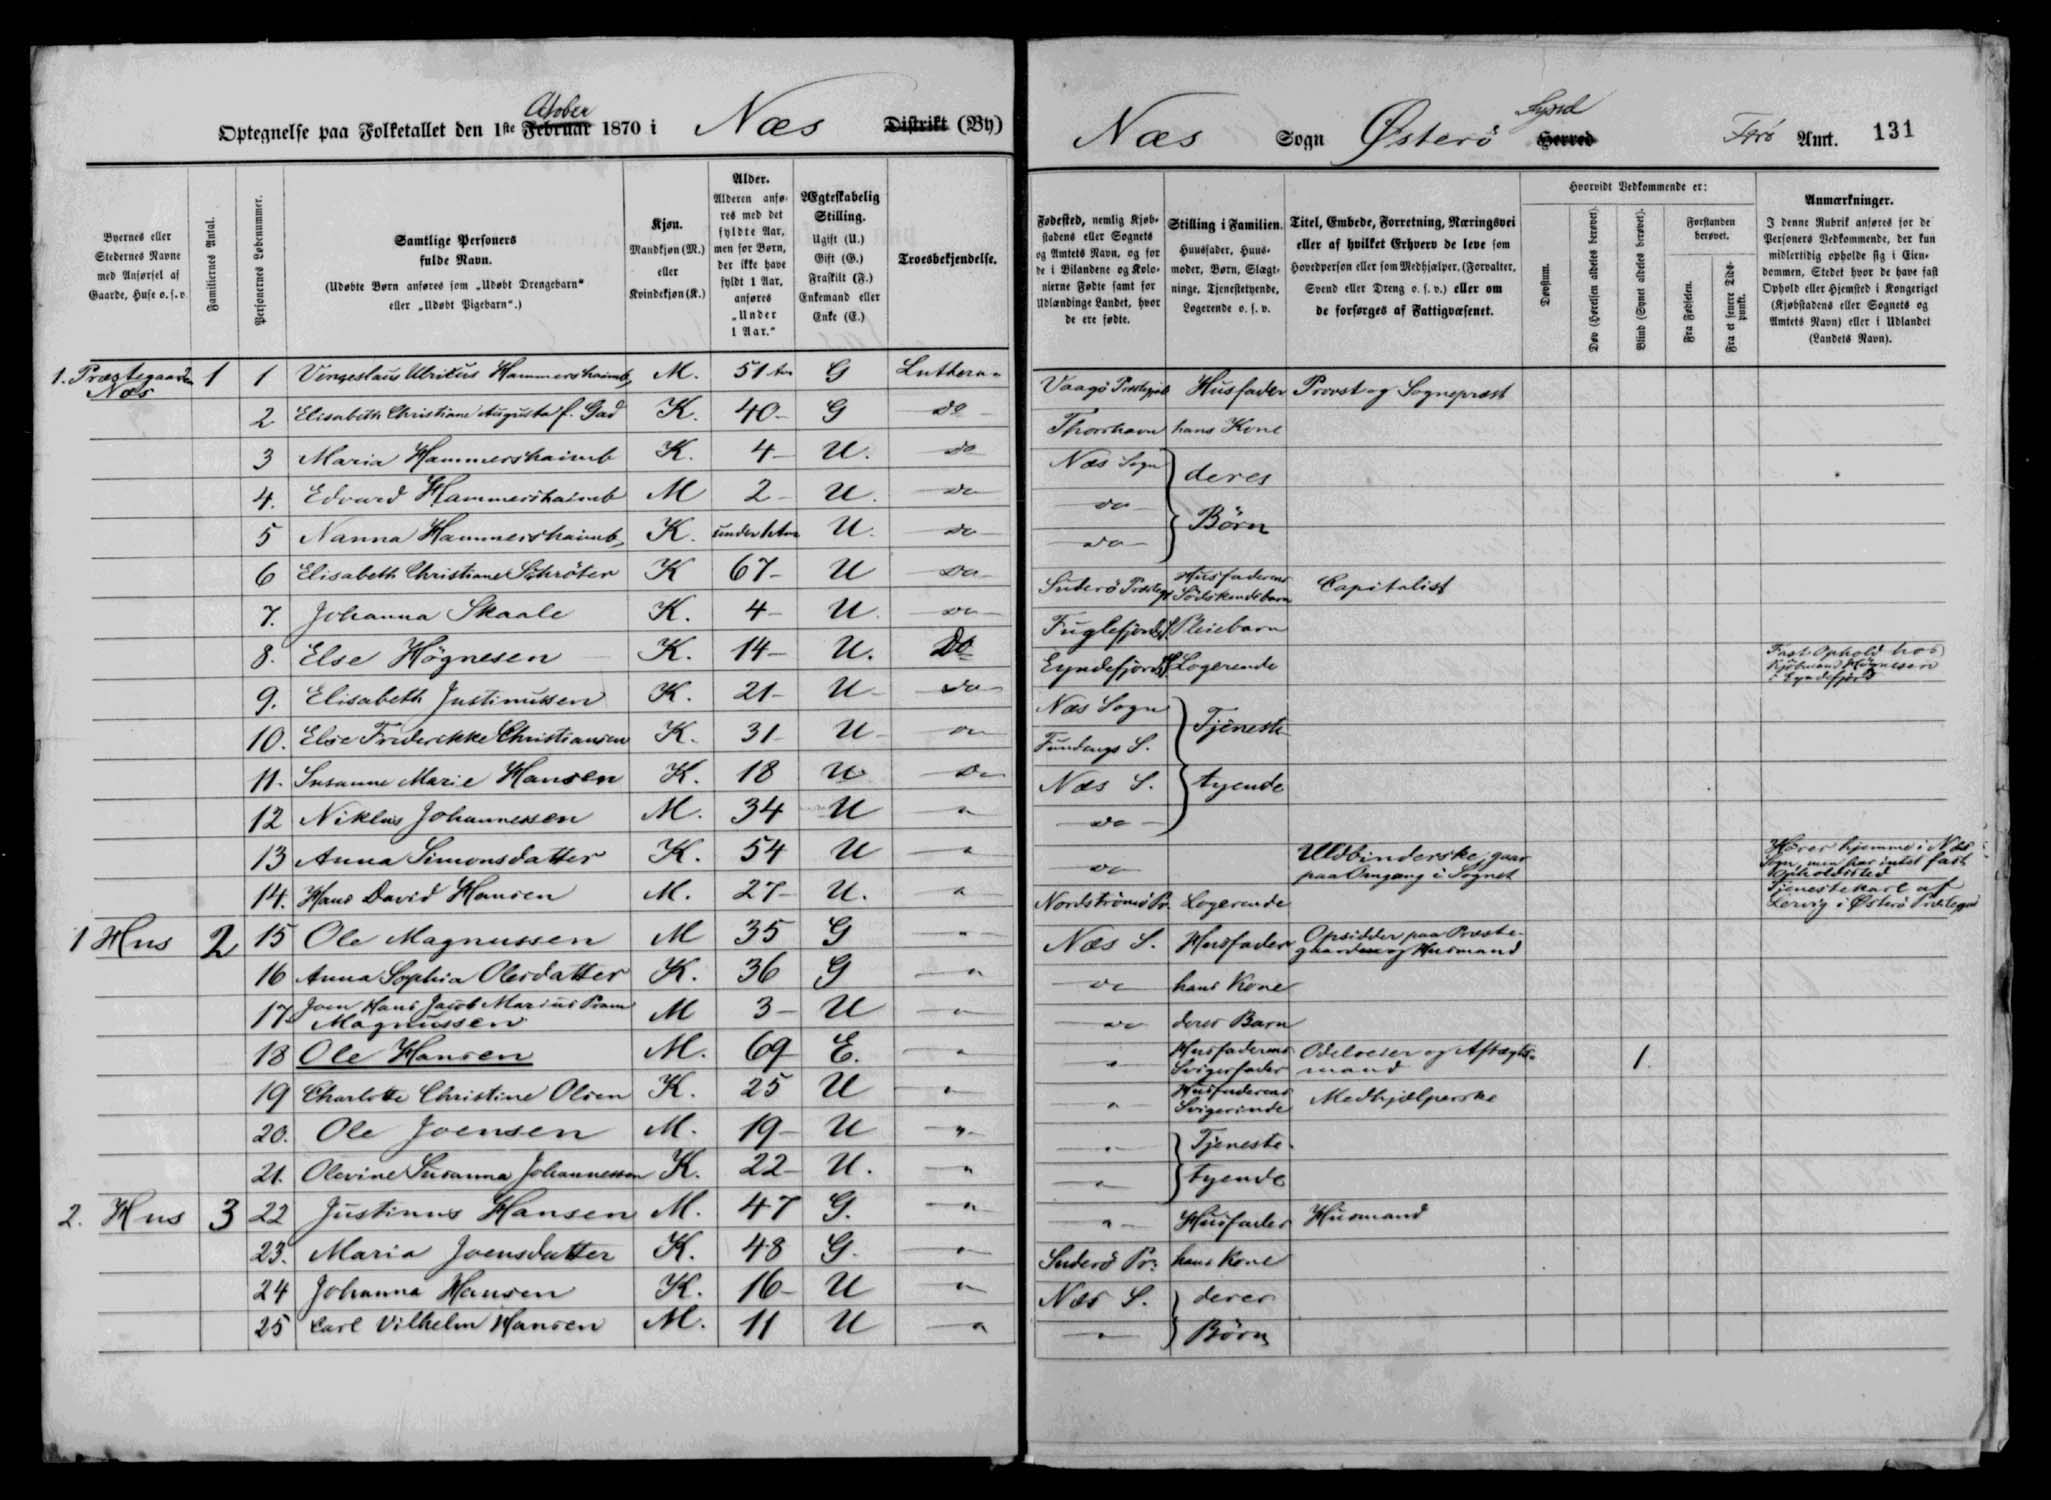 October
Optegnelse paa Folketallet den 1ste Februar 1870 i Næs Distrikt (By)
Byernes eller Stedernes Navne med Anførsel af Gaarde, Huse o.s.v.
Familiernes Antal.
Personernes Løbenummer.
Samtlige Personers fulde Navn.
(Udøbte Børn anføres som „Udøbt Drengebarn“ eller „Udøbt Pigebarn“.)
Kjøn.
Mandkjøn (M.) eller Kvindekjøn (K.)
Alder.
Alderen anføres med det fyldte Aar, men for Børn, der ikke have fyldt 1 Aar, anføres „Under 1 Aar.“
Ægteskabelig Stilling.
Ugift (U.) Gift (G.) Fraskilt (F.) Enkemand eller Enke (E.)
Troesbekjendelse.
1. Præstegaarden Næs 1 1 Vengeslaus Ulricus Hammershaimb M. 51 G Luthera
2 Elisabeth Christiane Augusta f. Gad K. 40 G do
3 Maria Hammershaimb K. 4 U. do
4. Edvard Hammershaimb M 2 U. do
5 Nanna Hammershaimb K. under 1 Aar U. do
6 Elisabeth Christiane Schröter K 67 U do
7. Johanna Skaale K. 4 U. do
8. Else Högnesen K. 14 U. Do
9. Elisabeth Justinussen K. 21 U do
10. Else Friderikke Christiansen K. 31 U do
11. Susanne Marie Hansen K. 18 U do
12 Niklas Johannessen M. 34 U "
13 Anna Simonsdatter K. 54 U "
14. Hans David Hansen M. 27 U. "
1 Hus 2 15 Ole Magnussen M 35 G "
16 Anna Sophia Olesdatter K. 36 G "
17 Joen Hans Jacob Marius Pram Magnussen M 3 U "
18 Ole Hansen M. 69 E. "
19 Charlotte Christine Olsen K. 25 U "
20. Ole Joensen M. 19 U "
21. Olevine Susanna Johannessen K. 22 U. "
2. Hus 3 22 Justinus Hansen M. 47 G. "
23. Maria Joensdatter K. 48 G. "
24 Johanna Hansen K. 16 U "
25 Carl Vilhelm Hansen M. 11 U "
Næs Sogn Østerö Syssel Herred Færö Amt. 131
Fødested, nemlig Kjøbstadens eller Sognets og Amtets Navn, og for de i Bilandene og Kolonierne Fødte samt for Udlændinge Landet, hvor de ere fødte.
Stilling i Familien.
Huusfader, Huusmoder, Børn, Slægtninge, Tjenestetyende, Logerende o.s.v.
Titel, Embede, Forretning, Næringsvei eller af hvilket Erhverv de leve som Hovedperson eller som Medhjælper, (Forvalter, Svend eller Dreng o.s.v.) eller om de forsørges af Fattigvæsenet.
Hvorvidt Vedkommende er:
Døvstum.
Døv (Hørelsen aldeles berøvet).
Blind (Synet aldeles berøvet).
Forstanden berøvet.
Fra Fødselen.
Fra et senere Tidspunkt.
Anmærkninger.
I denne Rubrik anføres for de Personers Vedkommende, der kun midlertidig opholde sig i Eiendommen, Stedet hvor de have fast Ophold eller Hjemsted i Kongeriget (Kjøbstadens eller Sognets og Amtets Navn) eller i Udlandet (Landets Navn).
Vaagö Præstegjeld Husfader Provst og Sognepræst
Thorshavn hans Kone
Næs Sogn deres
do
do Börn
Suderö Præstegj. Husfaderens Södskendebarn Capitalist
Fuglefjord S. Pleiebarn
Eyndefjord S. Logerende Fast Ophold hos Kjöbmand Högnesen i Eyndefjord
Næs Sogn Tjeneste
Fundengs S.
Næs S. tyende
do
do Uldbinderske, gaar paa Omgang i Sognet Hörer hjemme i Næs Sogn, men har intet fast Opholdssted
Nordströmö Pr. Logerende Tjenestekarl af Lervig i Østerö Præstegjeld
Næs S. Husfader Opsidder paa Præstegaarden og Husmand
do hans Kone
do deres Barn
" Husfaderens Svigerfader Odelseier og Aftægtsmand 1.
" Husfaderens Svigerinde Medhjælperske
" Tjeneste
" tyende
" Husfader Husmand
Suderö Pr. hans Kone
Næs S. deres
" Börn